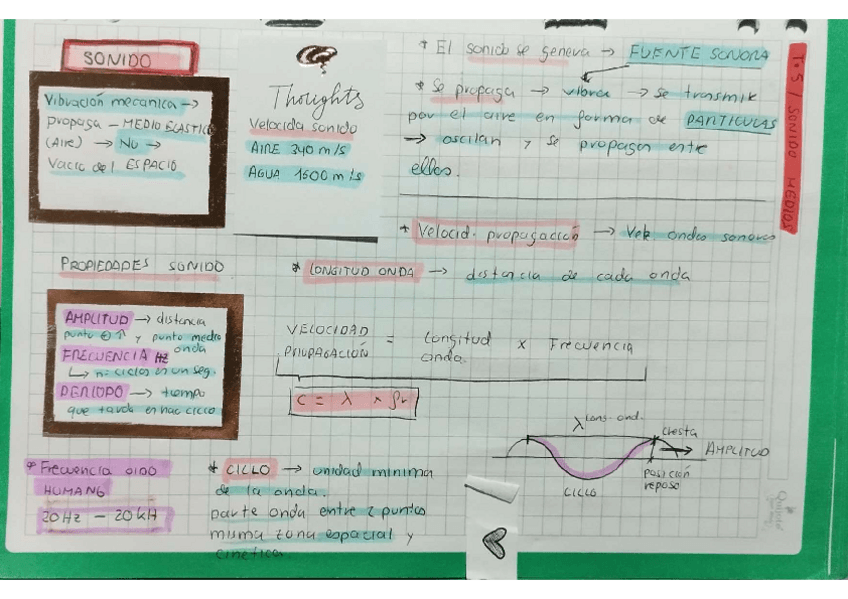 SONIDO
Vibración mecanica →
propaga - MEDIO ELASTICO
(Aire) → NO →
Vacio del ESPACIO
Thoughts
Velocida sonido
AIRE 340 m/s
AGUA 1600 m/s
* El sonido se genera → FUENTE SONORA
* Se propaga → vibra → se transmite
por el aire en forma de PARTICULAS
→ oscilan y se propagan entre
ellas.
T.5 / SONIDO MEDIOS
* Velocid. propagación → Vel. ondas sonoras
* LONGITUD ONDA → distancia de cada onda
PROPIEDADES SONIDO
AMPLITUD → distancia
punto ⊕ ↑ y punto medio
onda
FRECUENCIA Hz
↳ nº ciclos en un seg.
PERIODO → tiempo
que tarda en hac ciclo
VELOCIDAD PROPAGACIÓN = Longitud onda. x Frecuencia
C = λ x fr
λ long. ond.
cresta
AMPLITUD
posición
reposo
CICLO
* Frecuencia oido
HUMANO
20 Hz - 20 kH
* CICLO → unidad minima
de la onda.
parte onda entre 2 puntos
misma zona espacial y
cinética.